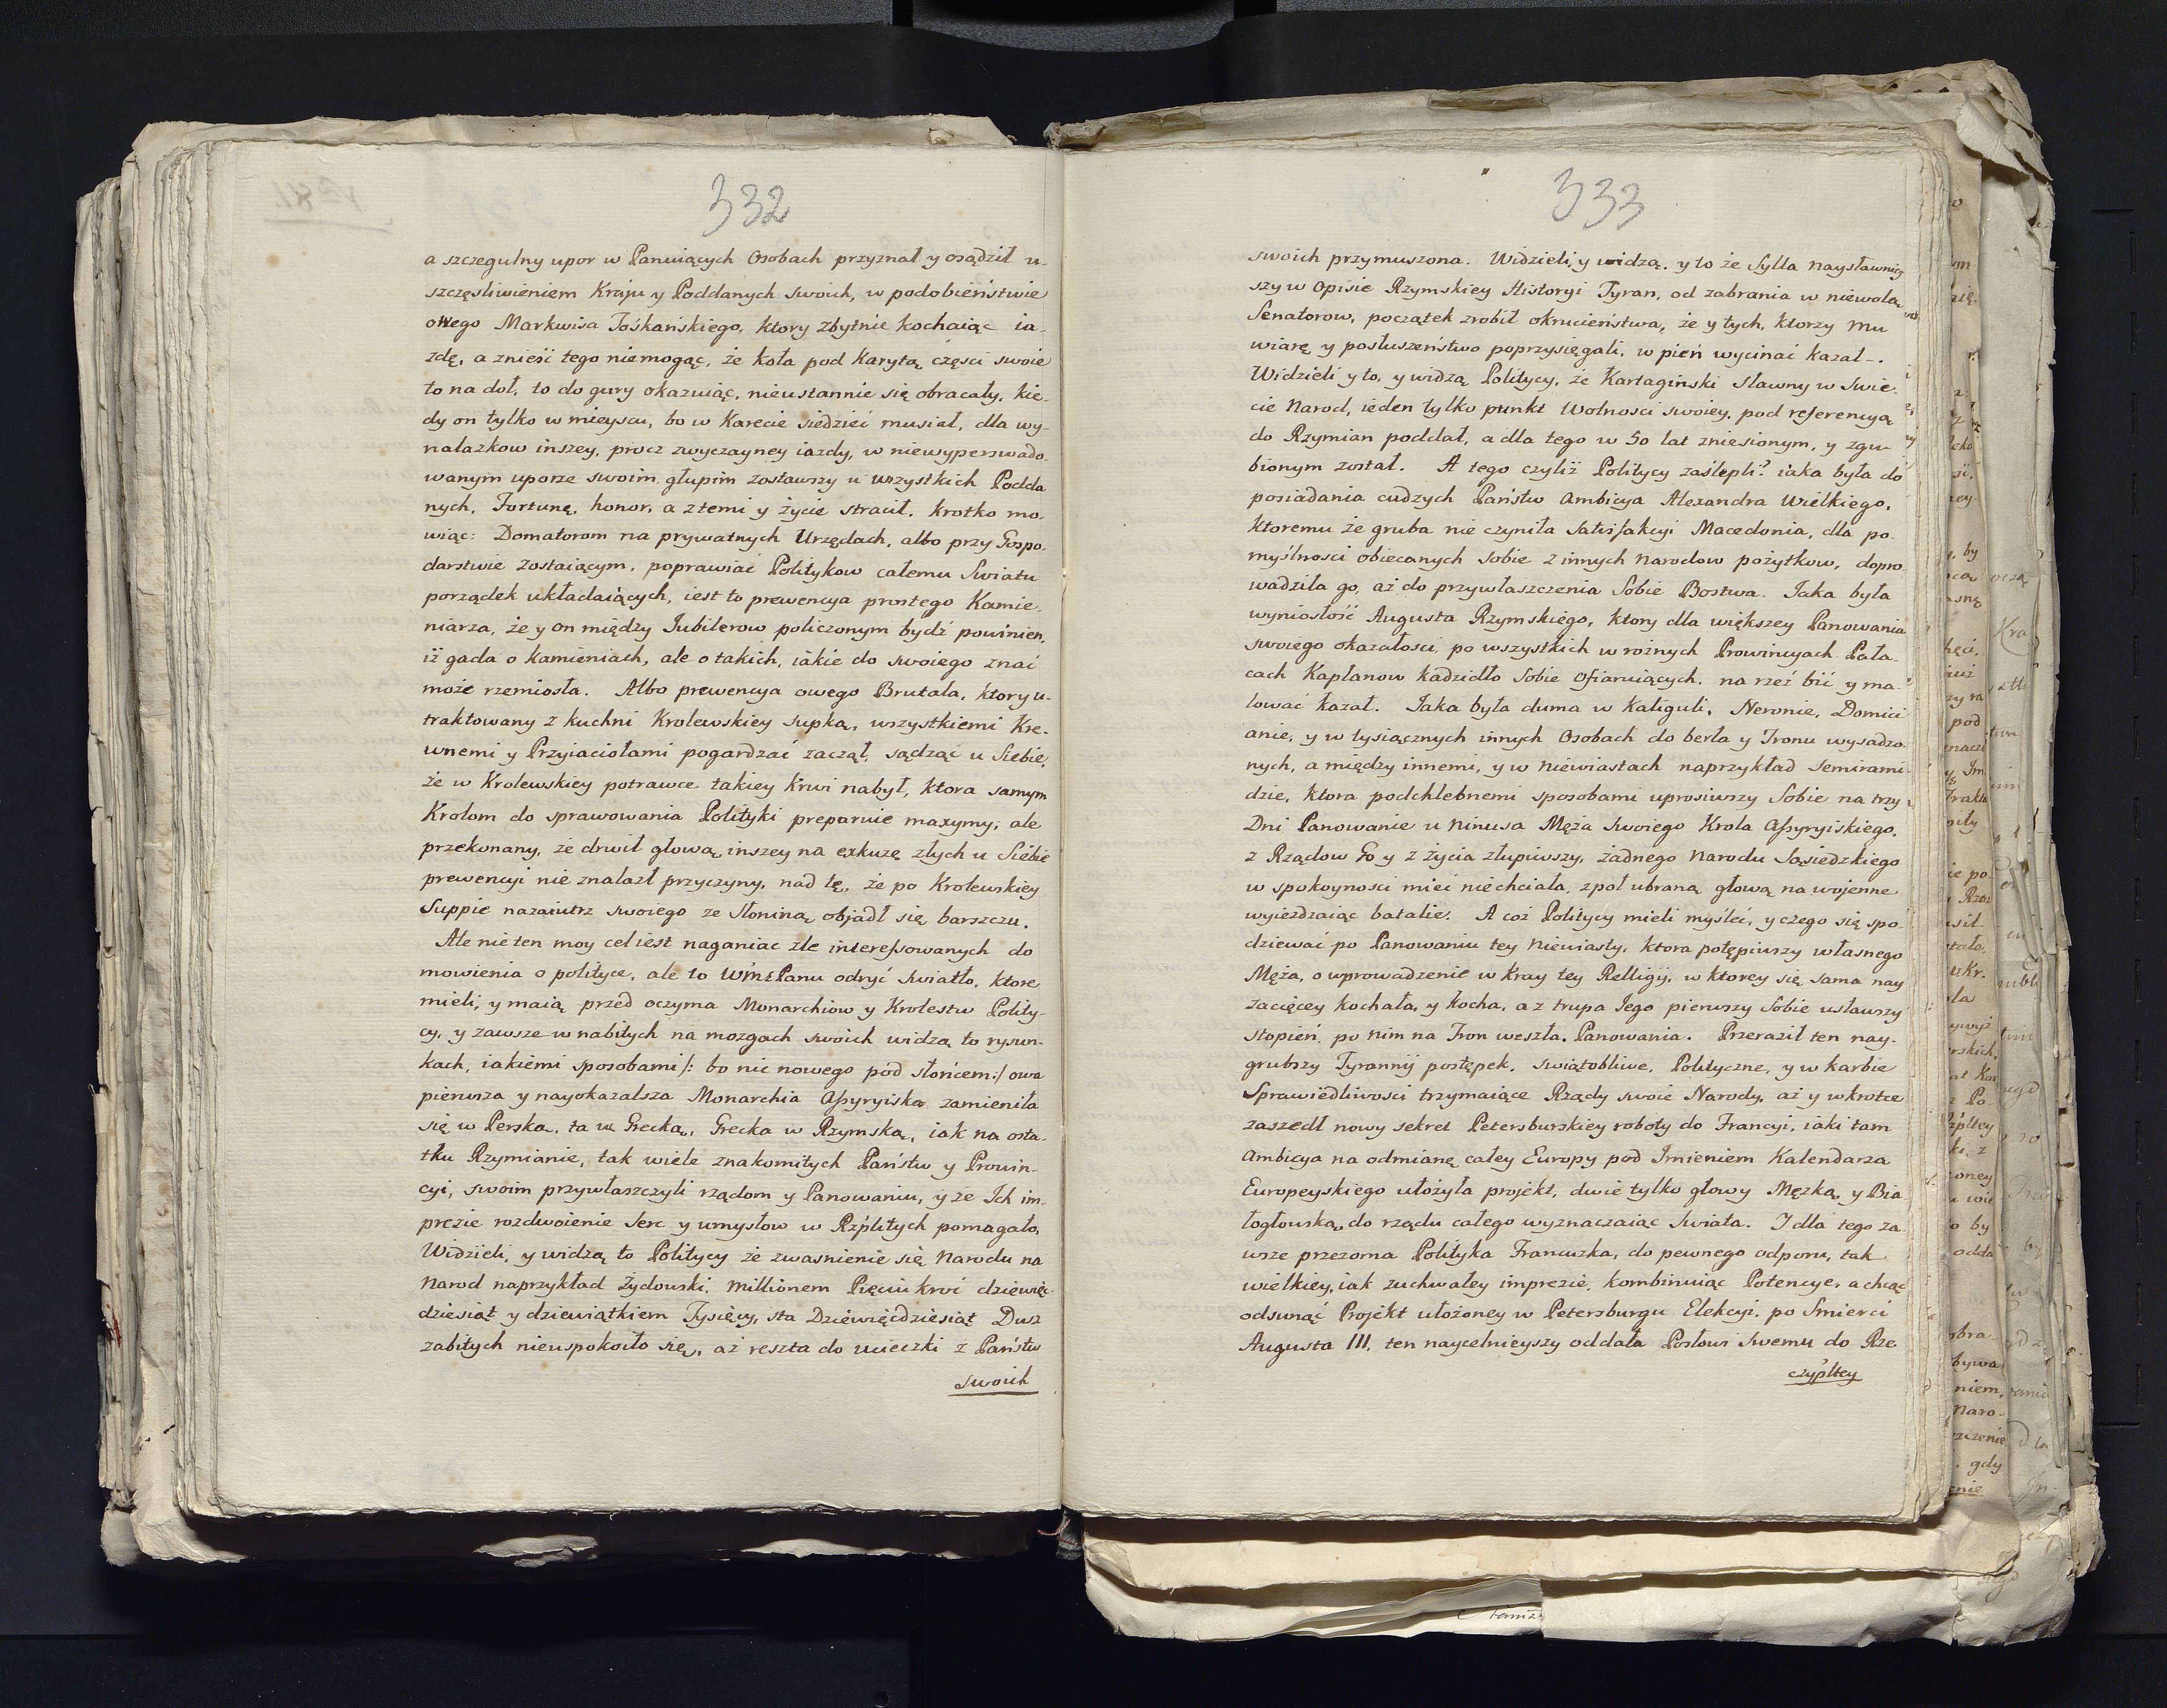 332
a szczegulny upor w Panuiących Osobach przyznał y osądził u-
szczęsliwieniem Kraju y Poddanych swoich, w podobieństwie
owego Markwisa Tośkańskiego, ktory zbytnie kochaiąc ia-
zdę, a znieść tego niemogąc, że koła pod Karytą częsci swoie
to na doł, to do gury okazuiąc, nieustannie się obracały, kie-
dy on tylko w mieyscu, bo w Karecie siedzieć musiał, dla wy-
nalazkow inszey, procz zwyczayney iazdy, w niewyperswado-
wanym uporze swoim głupim zostawszy u wszystkich Podda
nych, Fortunę, honor, a z temi y życie stracił. Krotko mo-
wiąc: Domatorom na prywatnych Urzędach, albo przy Gospo-
darstwie zostaiącym, poprawiać Politykow całemu Swiatu
porządek układaiących, iest to prewencya prostego Kamie-
niarza, że y on między Jubilerow policzonym bydź powinien,
iż gada o kamieniach, ale o takich, iakie do swoiego znać
może rzemiosła. Albo prewencya owego Brutala, ktory u-
traktowany z kuchni Krolewskiey supką, wszystkiemi Kre-
wnemi y Przyiaciołami pogardzać zaczął, sądząc u Siebie,
że w Krolewskiey potrawce takiey krwi nabył, ktora samym
Krolom do sprawowania Polityki preparuie maxymy, ale
przekonany, że drwił głową, inszey na exkuzę złych u Siebie
prewencyi nie znalazł przyczyny, nad tę, że po Krolewskiey
Suppie nazaiutrz swoiego ze słoniną objadł się barszczu.
Ale nie ten moy cel iest naganiac zle interessowanych do
mowienia o polityce, ale to WmćPanu odryć swiatło, ktore
mieli, y maią przed oczyma Monarchiow y Krolestw Polity-
cy, y zawsze w nabitych na mozgach swoich widzą to rysun-
kach, iakiemi sposobami /: bo nic nowego pod słońcem :/ owa
pierwsza y nayokazalsza Monarchia Assyryiska zamieniła
się w Perską, ta w Grecką, Grecka w Rzymską, iak na osta-
tku Rzymianie, tak wiele znakomitych Państw y Prowin-
cyi, swoim przywłaszczyli rządom y Panowaniu, y że Ich im-
prezie rozdwoienie serc y umysłow w Rzplitych pomagało,
Widzieli, y widzą to Politycy że zwasnienie się Narodu na
Narod naprzykład żydowski, Millionem Pięciu kroć dziewięć-
dziesiąt y dziewiątkiem Tysięcy, sta Dziewięćdziesiąt Dusz
zabitych nieuspokoiło się, aż reszta do ucieczki z Państw
swoich
333
swoich przymuszona. Widzieli y widzą, y to że Sylla naysławniey
szy w Opisie Rzymskiey Historyi Tyran, od zabrania w niewolą
Senatorow, początek zrobił okrucieństwa, że y tych, ktorzy mu
wiarę y posłuszeństwo poprzysięgali, w pień wycinać kazał.
Widzieli y to, y widzą Politycy, że Kartagiński sławny w Swie-
cie Narod, ieden tylko punkt Wolnosci swoiey, pod referencyą
do Rzymian poddał, a dla tego w 50 lat zniesionym, y zgu-
bionym został. A tego czyliż Politycy zaślepli? iaka była do
posiadania cudzych Państw Ambicya Alexandra Wielkiego,
ktoremu że gruba nie czyniła Satisfakcyi Macedonia, dla po-
myślnosci obiecanych sobie z innych Narodow pożytkow, dopro-
wadziła go, aż do przywłaszczenia Sobie Bostwa. Jaka była
wyniosłość Augusta Rzymskiego, ktory dla większey Panowania
swoiego okazałosci, po wszystkich w rożnych Prowincyach Pała-
cach Kapłanow kadzidło Sobie ofiaruiących, na rzeź bić y ma-
lować kazał. Jaka była duma w Kaliguli, Neronie, Domici
anie, y w tysiącznych innych Osobach do berła y Tronu wysadzo-
nych, a między innemi, y w niewiastach naprzykład Semirami-
dzie, ktora podchlebnemi sposobami uprosiwszy Sobie na trzy
Dni Panowanie u Ninusa Męża swoiego Krola Assyryiskiego,
z Rządow Go y z życia złupiwszy, żadnego Narodu Sąsiedzkiego
w spokoynosci mieć niechciała, z poł ubraną głową na wojenne
wyieżdzaiąc batalie. A coż Politycy mieli myśleć, y czego się spo-
dziewać po Panowaniu tey Niewiasty, ktora potępiwszy własnego
Męża, o wprowadzenie w Kray tey Relligii, w ktorey się sama nay
zacięcey kochała, y kocha, a z trupa Jego pierwszy Sobie usławszy
stopień, po nim na Tron weszła Panowania. Przeraził ten nay-
grubszy Tyrannij postępek, swiątobliwe, Polityczne, y w karbie
Sprawiedliwosci trzymaiące Rządy swoie Narody, aż y wkrotce
zaszedł nowy sekret Petersburskiey roboty do Francyi, iaki tam
Ambicya na odmianę całey Europy pod Imieniem Kalendarza
Europeyskiego ułożyła projekt, dwie tylko głowy Męzką, y Bia
łogłowską, do rządu całego wyznaczaiąc Swiata. I dla tego za
wsze przezorna Polityka Francuzka, do pewnego odporu, tak
wielkiey, iak zuchwałey imprezie, kombinuiąc Potencye, a chcąc
odsunąć Projekt ułożoney w Petersburgu Elekcyi, po Smierci
Augusta III, ten naycelnieyszy oddała Posłowi swemu do Rze-
czypltey